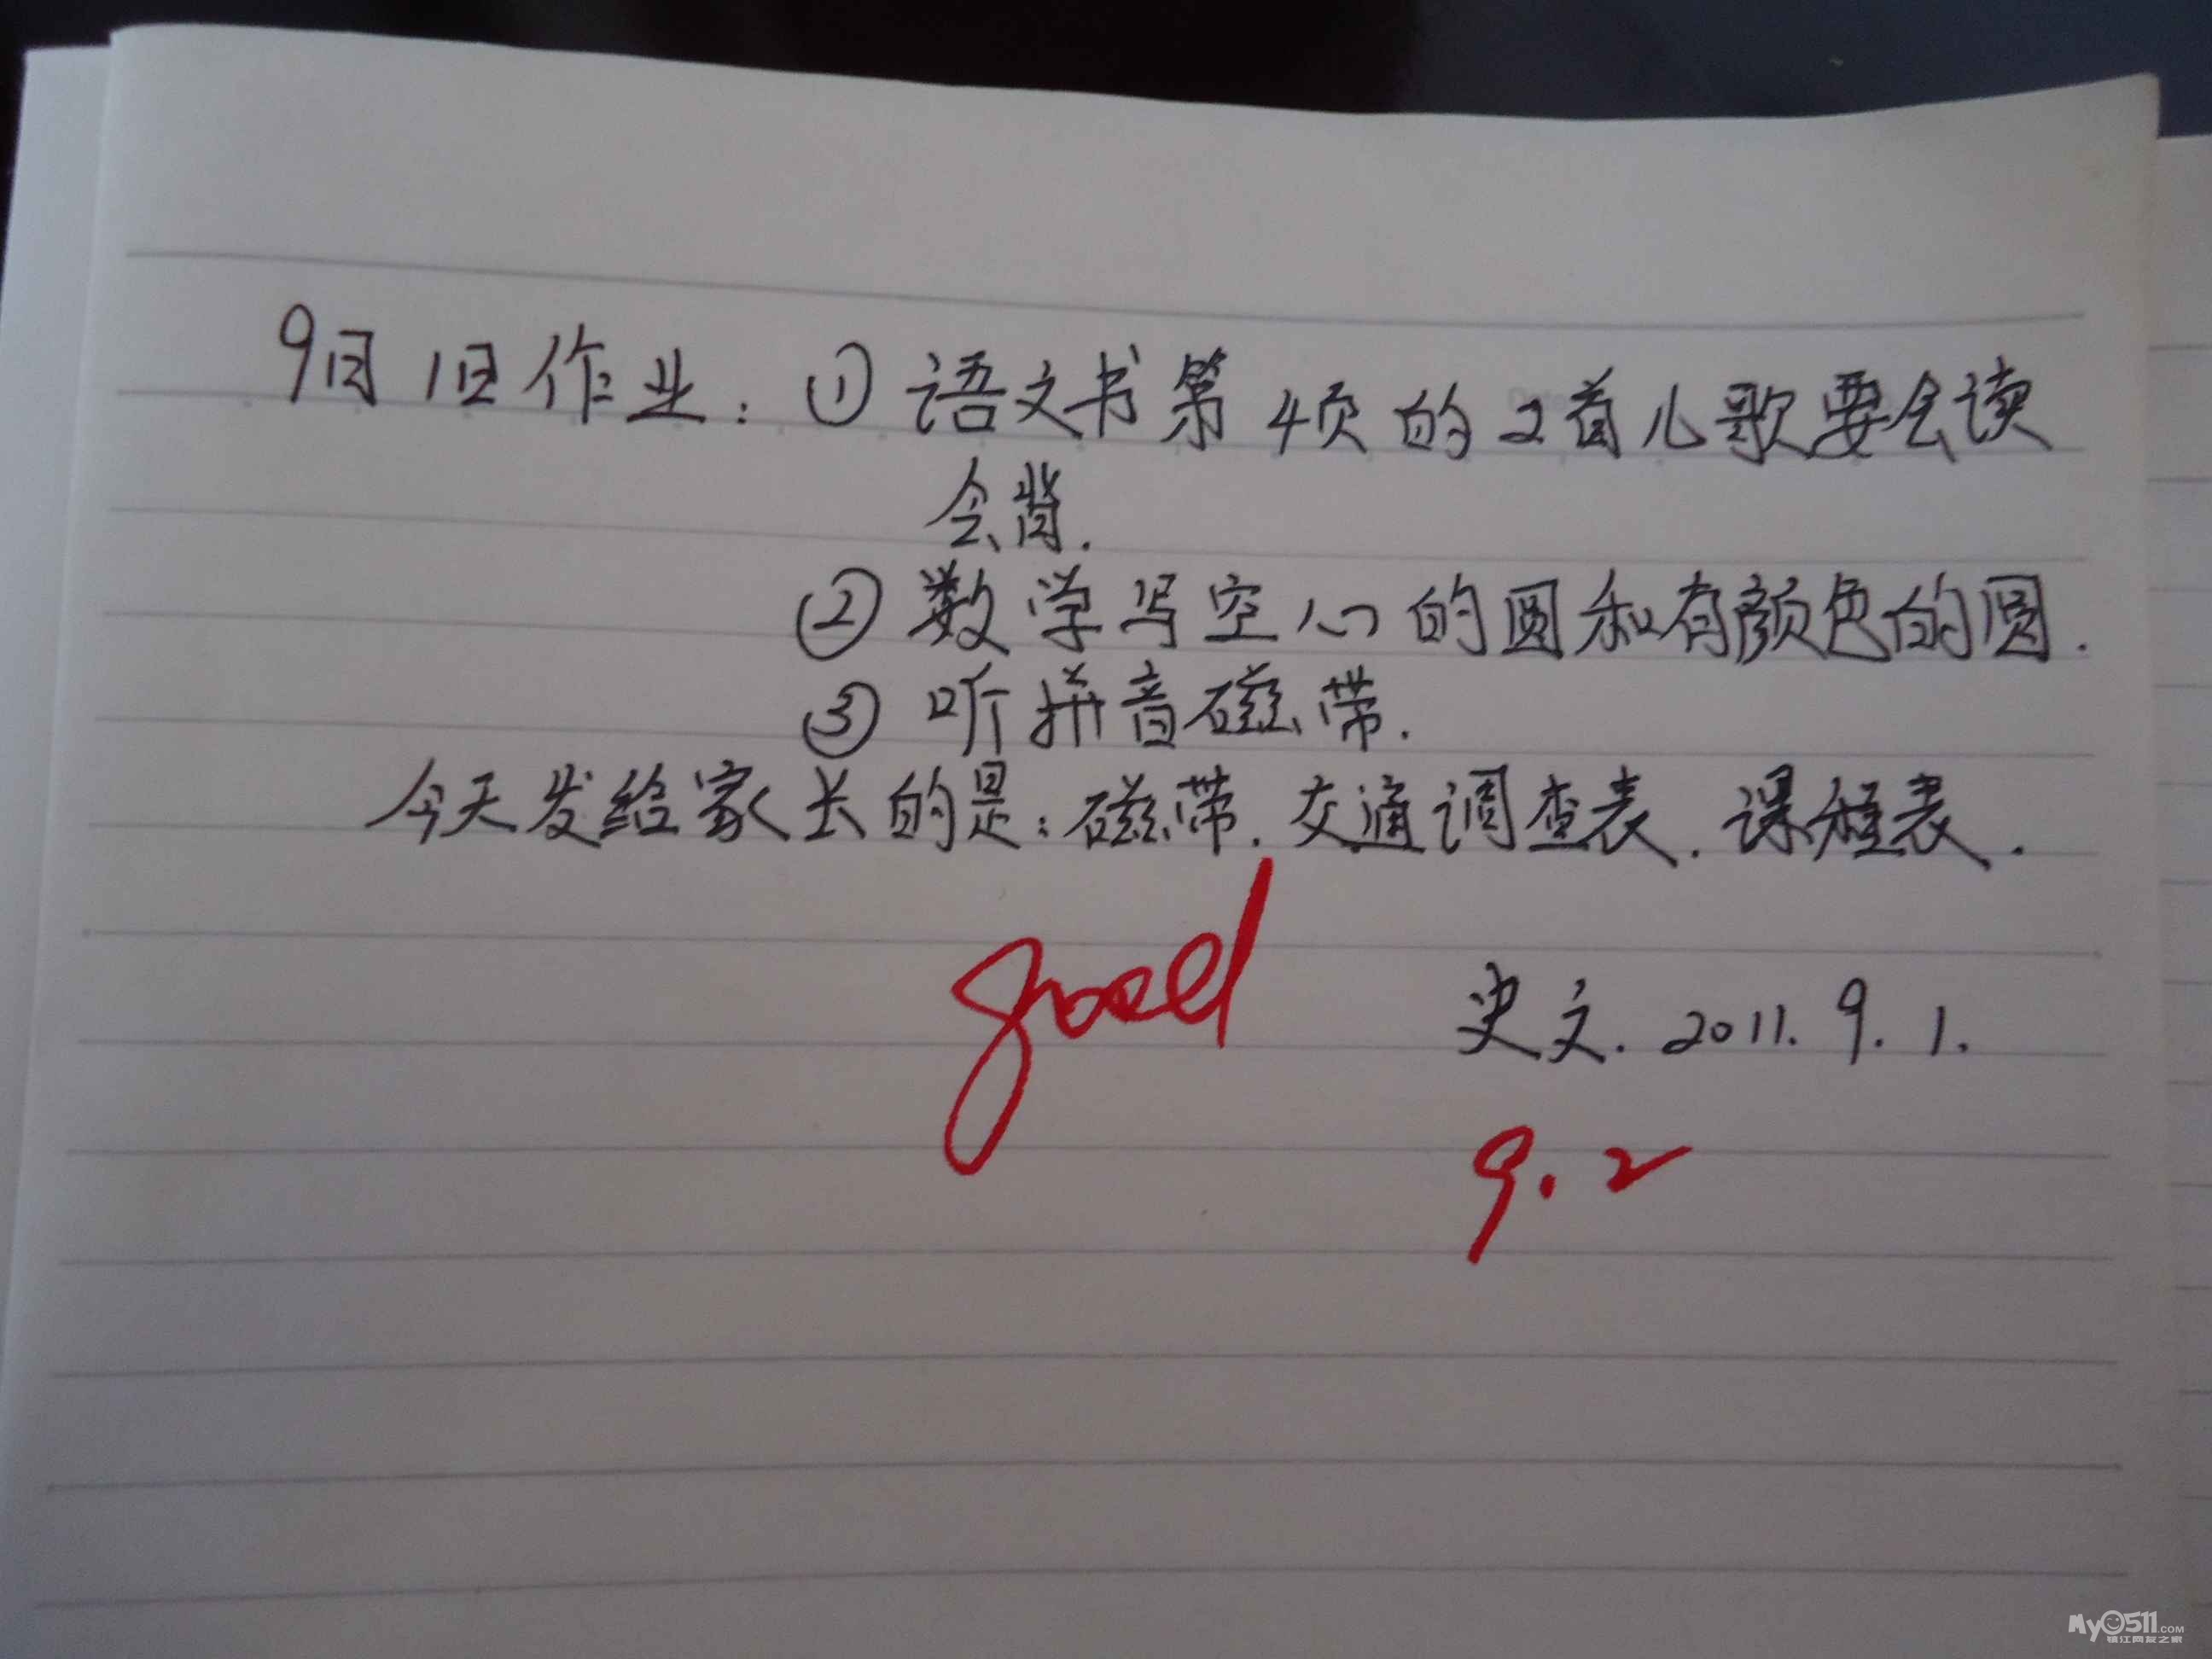 9月1日作业：①语文书第4页的2首儿歌要会读
会背.
②数学写空心的圆和有颜色的圆.
③听拼音磁带.
今天发给家长的是：磁带.交通调查表.课程表.
good
史文.2011.9.1.
9.2
My0511.COM
镇江网友之家